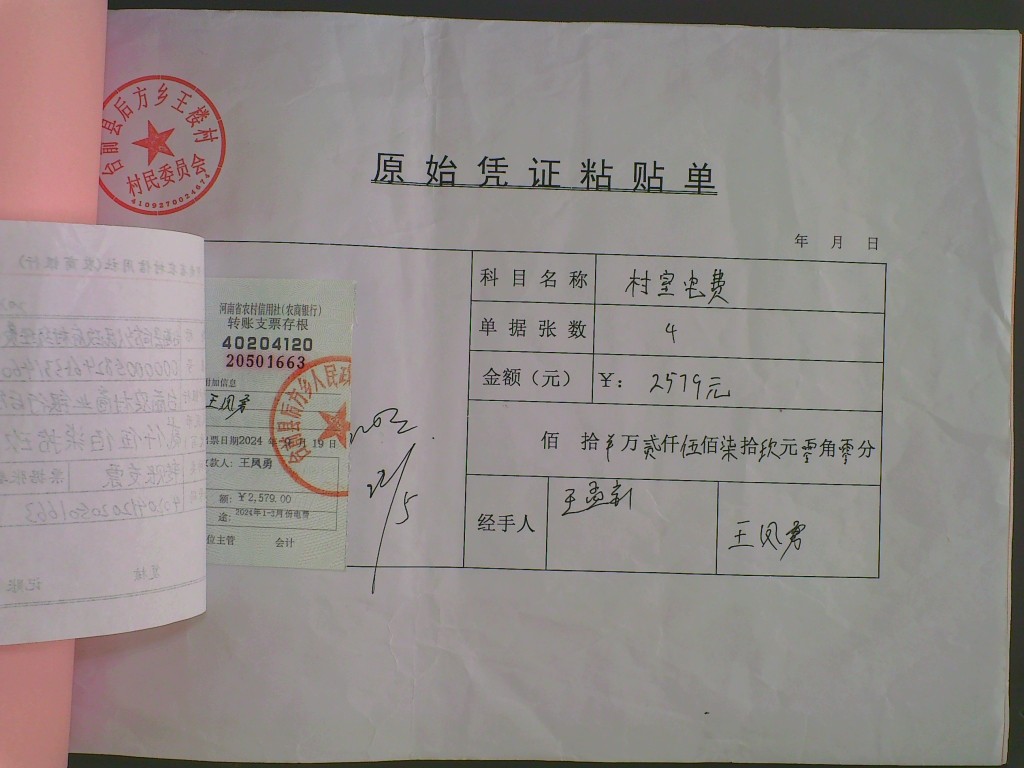 台前县后方乡王楼村
村民委员会
原始凭证粘贴单
年 月 日
科目名称 村室电费
单据张数 4
金额（元） ￥： 2579元
佰 拾 万贰仟伍佰柒拾玖元零角零分
经手人 王凤勇
河南省农村信用社(农商银行)
转账支票存根
40204120
20501663
附加信息
王凤勇
出票日期2024 年 月 19 日
收款人：王凤勇
额：￥2,579.00
途：2024年1-3月份电费
位主管 会计
台前县后方乡人民政